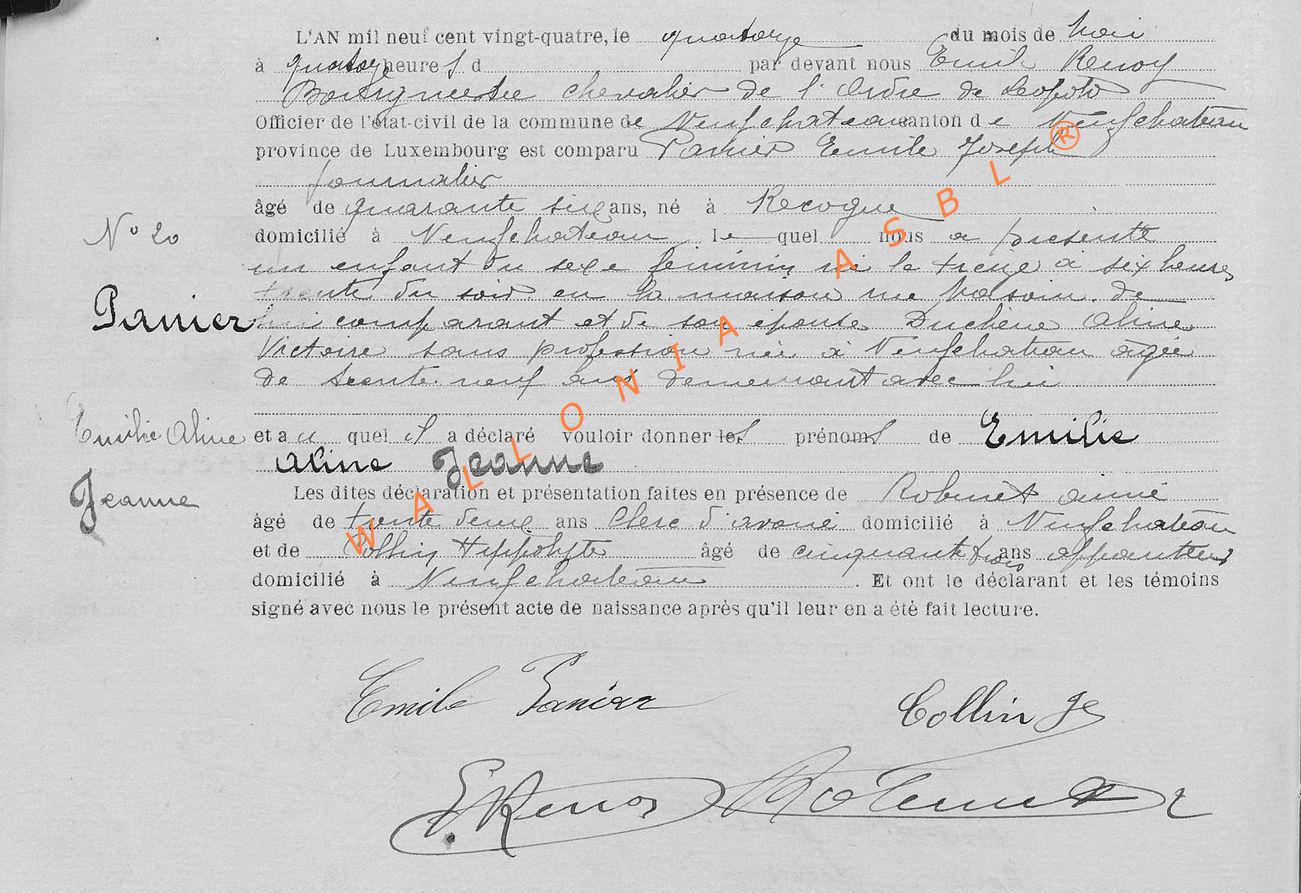 L'AN mil neuf cent vingt-quatre, le quatorze du mois de Mai
à quatorze heures d par devant nous Emile Renoy
Bourgmestre chevalier de l'Ordre de Léopold
Officier de l'état-civil de la commune de Neufchateau canton de Neufchateau
province de Luxembourg est comparu Panier Emile Joseph
journalier
âgé de quarante six ans, né à Recogne
N° 20
domicilié à Neufchateau le quel nous a présenté
un enfant du sexe féminin né le treize à six heures
trente du soir en sa maison rue de
Panier
lui comparant et de son épouse Duchêne Aline
Victoire sans profession née à Neufchateau agée
de trente neuf ans demeurant avec lui
Emilie Aline
Jeanne
et a u quel il a déclaré vouloir donner les prénoms de Emilie
Aline Jeanne
Les dites déclaration et présentation faites en présence de Robinet aimé
âgé de trente deux ans Clerc d'avoué domicilié à Neufchateau
et de Collin Hippolyte âgé de cinquante trois ans appariteur
domicilié à Neufchateau. Et ont le déclarant et les témoins
signé avec nous le présent acte de naissance après qu'il leur en a été fait lecture.
Emile Panier
Collin
E. Renoy
WALLONIA ASBL ®